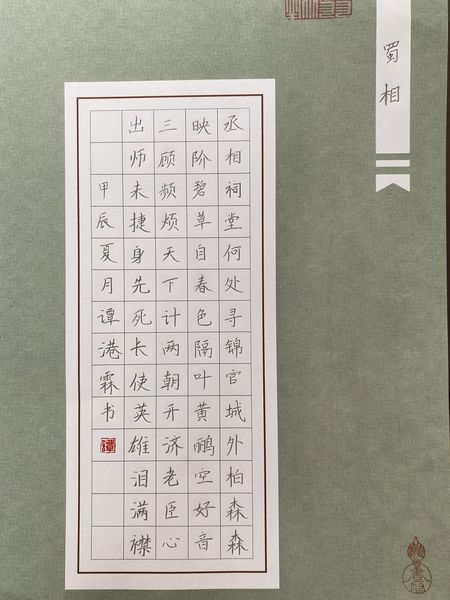 蜀相
丞相祠堂何处寻锦官城外柏森森
映阶碧草自春色隔叶黄鹂空好音
三顾频烦天下计两朝开济老臣心
出师未捷身先死长使英雄泪满襟
甲辰夏月谭港霖书